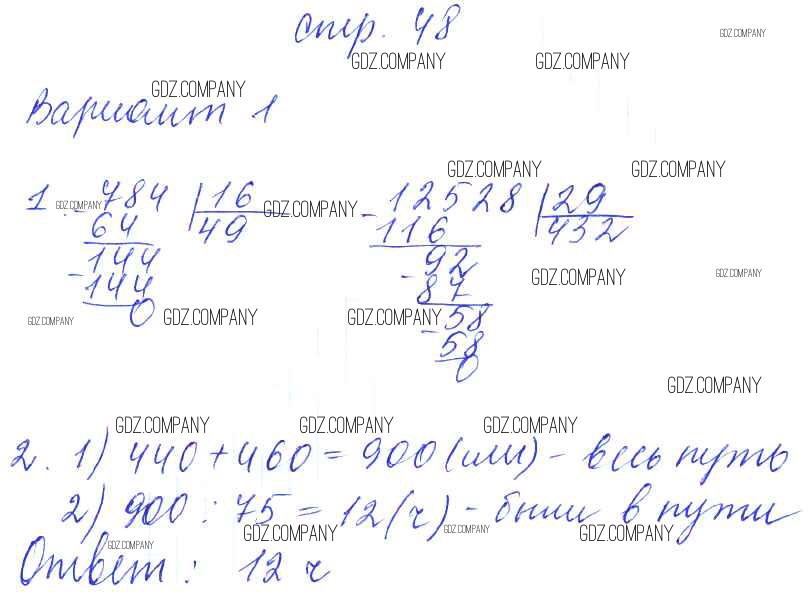 стр. 48
GDZ.COMPANY
GDZ.COMPANY GDZ.COMPANY
GDZ.COMPANY
Вариант 1
GDZ.COMPANY GDZ.COMPANY
1. - 784 | 16 - 12528 | 29
GDZ.COMPANY GDZ.COMPANY
64 49 116 432
144 92
GDZ.COMPANY GDZ.COMPANY
- 144 - 87
0 - 58
GDZ.COMPANY GDZ.COMPANY GDZ.COMPANY
58
0
GDZ.COMPANY
GDZ.COMPANY GDZ.COMPANY GDZ.COMPANY
2. 1) 440 + 460 = 900 (км) - весь путь
2) 900 : 75 = 12 (ч) - были в пути
GDZ.COMPANY GDZ.COMPANY GDZ.COMPANY GDZ.COMPANY
Ответ: 12 ч